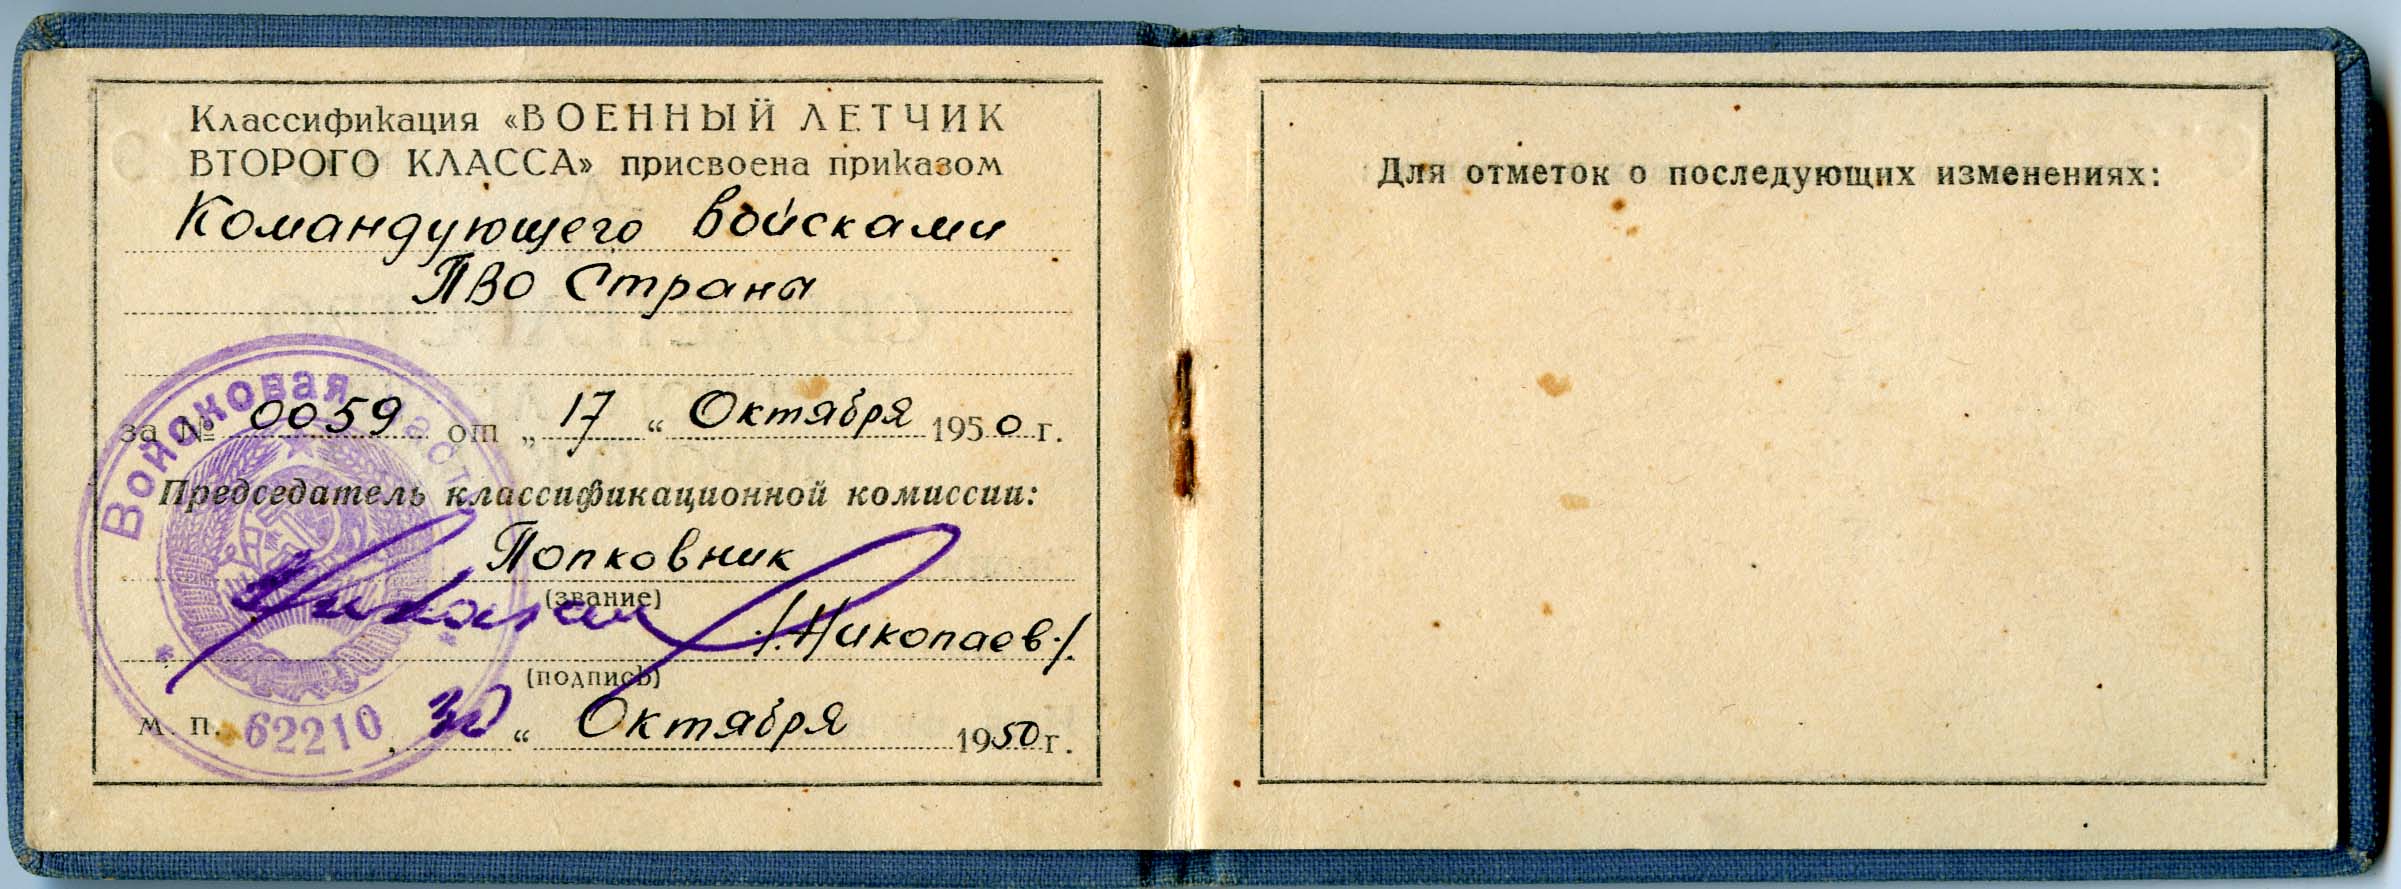 Классификация «ВОЕННЫЙ ЛЕТЧИК
ВТОРОГО КЛАССА» присвоена приказом
Командующего войсками
ПВО Страны
за № 0059 от „17“ Октября 1950 г.
Председатель классификационной комиссии:
Полковник
(звание)
/Николаев/.
(подпись)
м. п. „30“ Октября 1950 г.
Войсковая часть
62210
Для отметок о последующих изменениях: